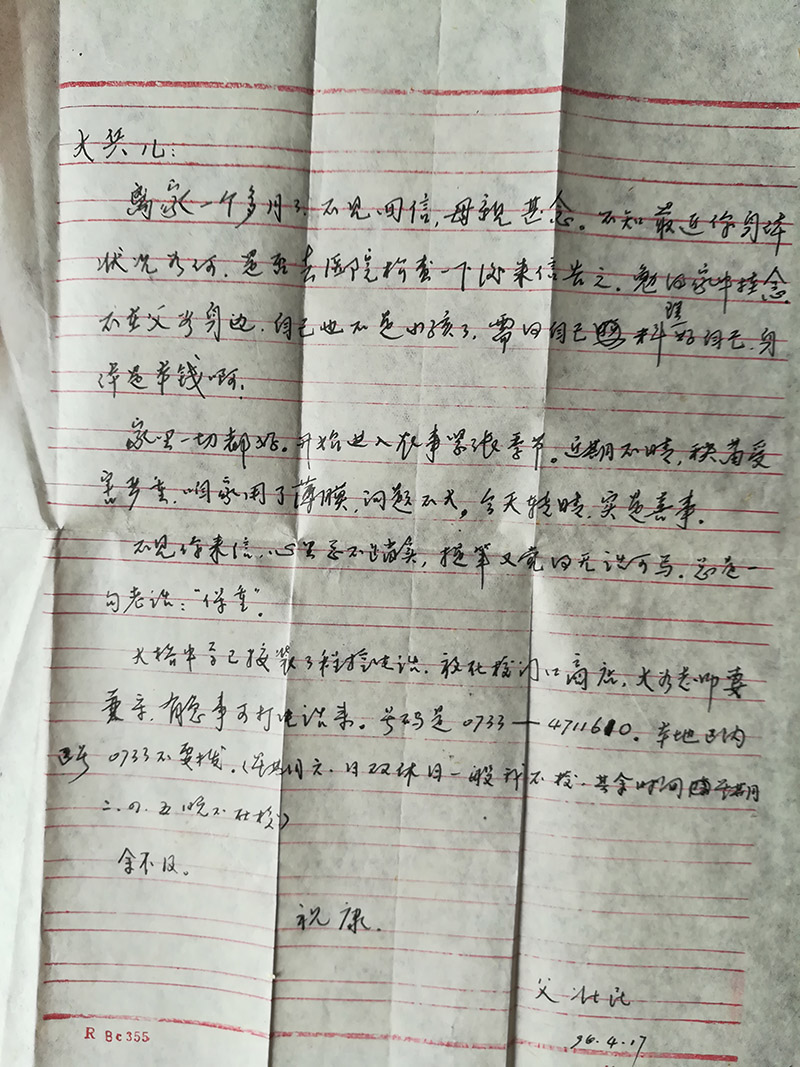 大兴儿:
离家一个多月了,不见回信,母亲甚念。不知最近你身体
状况如何,是否去医院检查一下,盼来信告之。勉得家中挂念
不在父母身边,自己也不是小孩了,需得自己料理好自己,身
体是本钱啊!
家里一切都好。开始进入农事紧张季节。近期不晴,秧苗受
害严重,咱家用了薄膜,问题不大。今天转晴,实是喜事。
不见你来信,心里总不踏实,提笔又觉得无话可写。总是一
句老话:“保重”。
大 中 已接装了程控电话,放在校门口商店,
有急事可打电话来。号码是0733—4711610。本地区内
区号0733不要拨。(星期六、日双休日一般我不在校,其余时间 星期
二、四、五晚不在校)
余不及。
祝康.
父
96.4.17
R Bc355